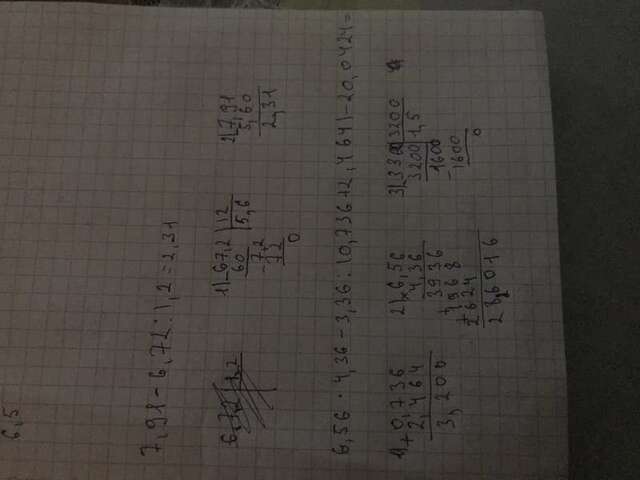 6,5
7,91 - 6,72 : 1,2 = 2,31
6,72 1,2
1) 67,2 12
60 5,6
7,2
72
0
2) 7,91
5,60
2,31
6,56 · 4,36 - 3,36 : (0,736 + 2,464) - 20,0424 =
1) + 0,736
2,464
3,200
2) × 6,56
4,36
3936
+ 1968
2624
28,6016
3) 3360 3200
3200 1,5
1600
1600
0
4